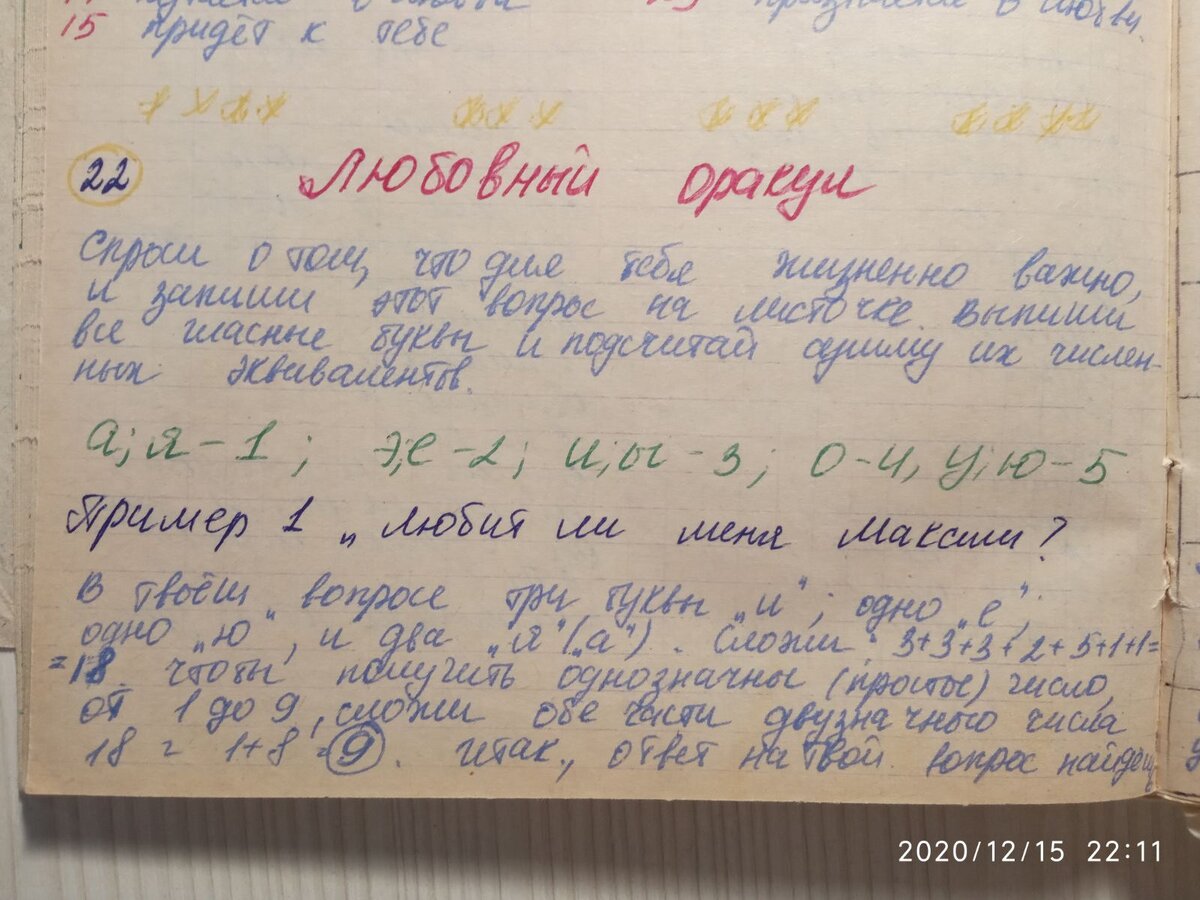 15 придёт к тебе
22 Любовный оракул
Спроси о том, что для тебя жизненно важно,
и запиши этот вопрос на листочке. Выпиши
все гласные буквы и подсчитай сумму их числен-
ных эквивалентов.
а;я-1; э;е-2; и;ы-3; о-4, у;ю-5
Пример 1 „Любит ли меня Максим?
В твоём вопросе три буквы „и"; одно „е",
одно „ю", и два „я"(„а"). Сложи: 3+3+3+2+5+1+1=
=18. чтобы получить однозначны (простое) число,
от 1 до 9, сложи обе части двузначного числа
18 = 1+8=9. Итак, ответ на твой вопрос найдёш
2020/12/15 22:11